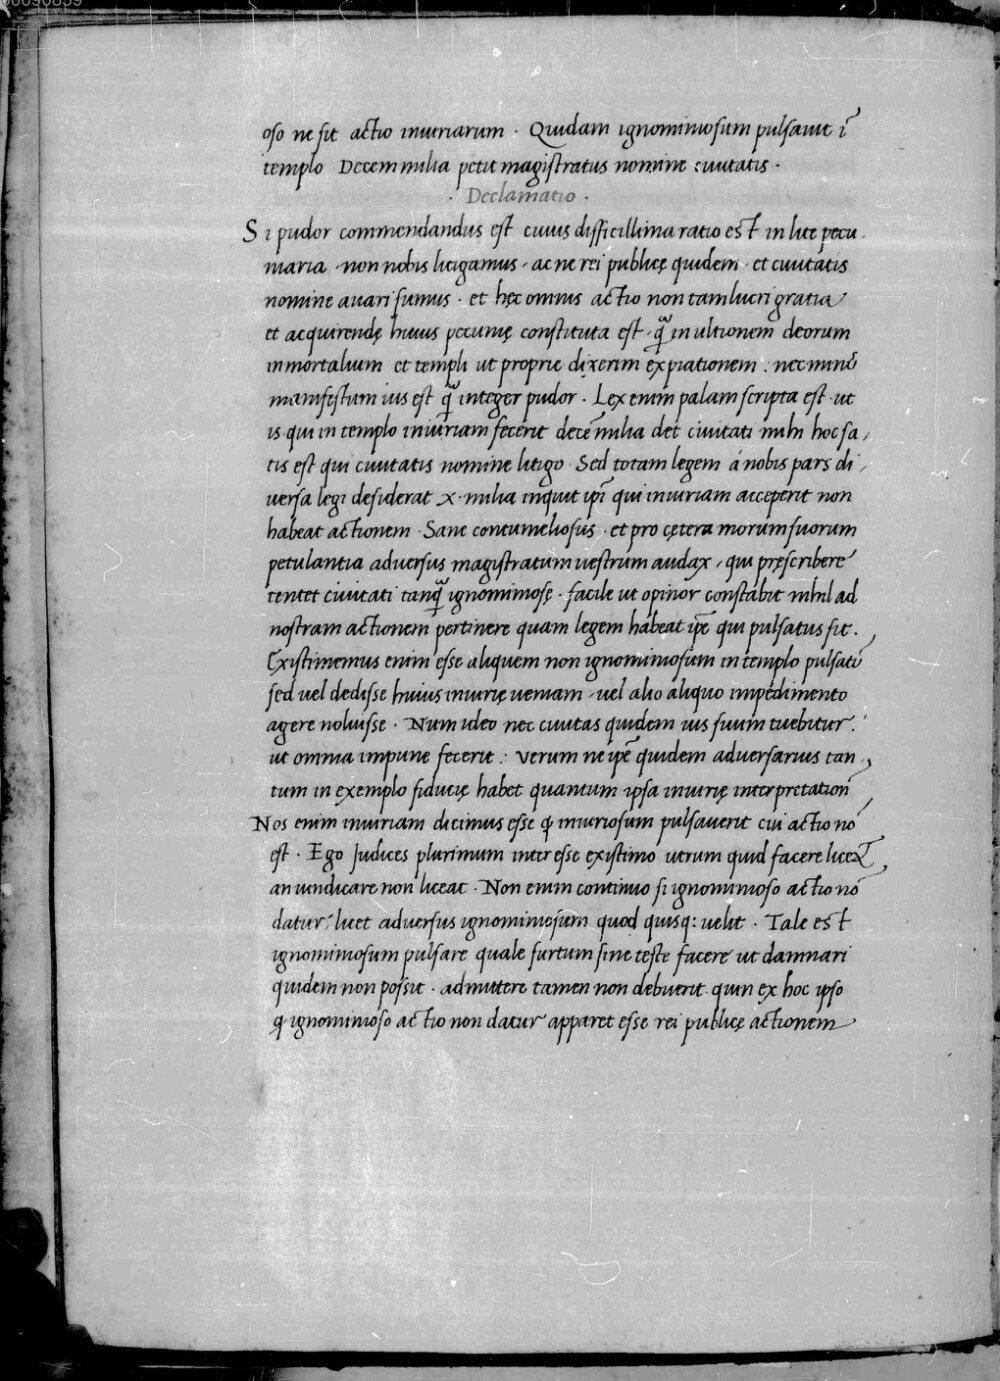 00090859
oso ne sit actio iniuriarum · Quidam ignominiosum pulsauit ĩ
templo Decem milia petit magistratus nomine ciuitatis ·
· Declamatio ·
Si pudor commendandus est cuius difficillima ratio est in lite pecu
niaria · non nobis litigamus · ac ne rei publicę quidem · et ciuitatis
nomine auari sumus · et hęc omnis actio non tam lucri gratia
et acquirendę huius pecunię constituta est · q̃ in ultionem deorum
inmortalium et templi ut proprie dixerim expiationem : nec minꝰ
manifestum ius est q̃ integer pudor · Lex enim palam scripta est · ut
is qui in templo iniuriam fecerit decẽ milia det ciuitati mihi hoc sa /
tis est qui ciuitatis nomine litigo · Sed totam legem á nobis pars di /
uersa legi desiderat x · milia inquit ipĩ qui iniuriam acceperit non
habeat actionem · Sane contumeliosus · et pro cętera morum suorum
petulantia aduersus magistratum uestrum audax / qui pręscribere
tentet ciuitati tanq̃ ignominiosę · facile ut opinor constabit nihil ad
nostram actionem pertinere quam legem habeat ip̃e qui pulsatus sit .
Existimemus enim esse aliquem non ignominiosum in templo pulsatũ
sed uel dedisse huius iniurię ueniam · uel alio aliquo impedimento
agere noluisse · Num ideo nec ciuitas quidem ius suum tuebitur :
ut omnia impune fecerit : verum ne ip̃e quidem aduersarius tan /
tum in exemplo fiducię habet quantum ipsa iniurię interpretatiõn
Nos enim iniuriam dicimus esse ꝙ iniuriosum pulsauerit cui actio nõ
est · Ego Iudices plurimum interesse existimo utrum quid facere liceat
an uindicare non liceat · Non enim continuo si ignominioso actio nõ
datur / licet aduersus ignominiosum quod quisq: uelit · Tale est
ignominiosum pulsare quale furtum sine teste facere ut damnari
quidem non possit · admittere tamen non debuerit quin ex hoc ipso
ꝙ ignominioso actio non datur apparet esse rei publicę actionem